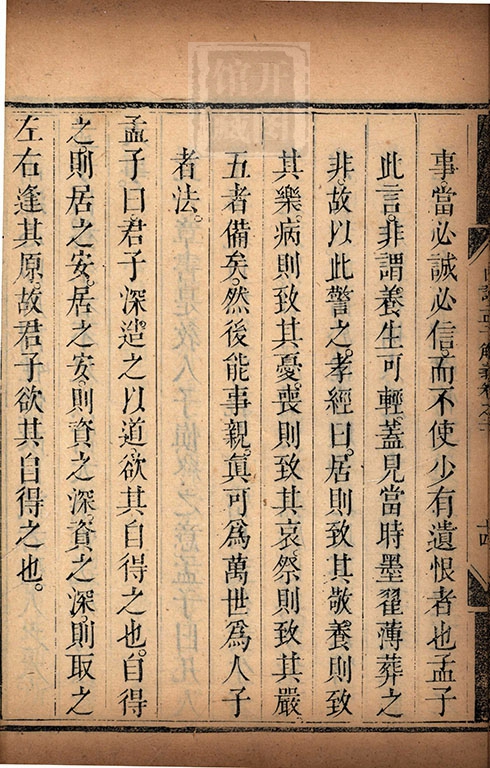 事當必誠必信而不使少有遺恨者也孟子
此言。非謂養生可輕。蓋見當時墨翟薄葬之
非。故以此警之。孝經曰。居則致其敬養則致
其樂。病則致其憂。喪則致其哀。祭則致其嚴
五者備矣。然後能事親。眞可爲萬世爲人子
者法。
孟子曰。君子深造之以道欲其自得之也。自得
之。則居之安。居之安。則資之深資之深則取之
左右逢其原。故君子欲其自得之也。